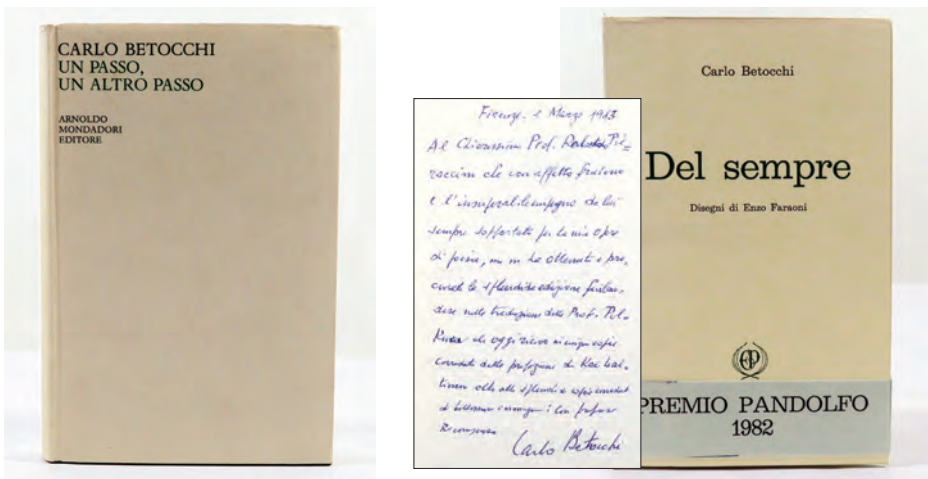 CARLO BETOCCHI
UN PASSO,
UN ALTRO PASSO
ARNOLDO
MONDADORI
EDITORE
Firenze, 2 Marzo 1983
Al Chiarissimo Prof.
che con affetto fraterno
e l'insuperabile impegno da lui
sempre sopportato per la mia opera
di poesia, mi ha ottenuto e pro-
curato la splendida edizione finlan-
dese nella traduzione della Prof.
che oggi ricevo in cinque copie
corredate della prefazione di
oltre alle splendide copie
di bellissime : Con
Riconoscenza
Carlo Betocchi
Carlo Betocchi
Del sempre
Disegni di Enzo Faraoni
PREMIO PANDOLFO
1982